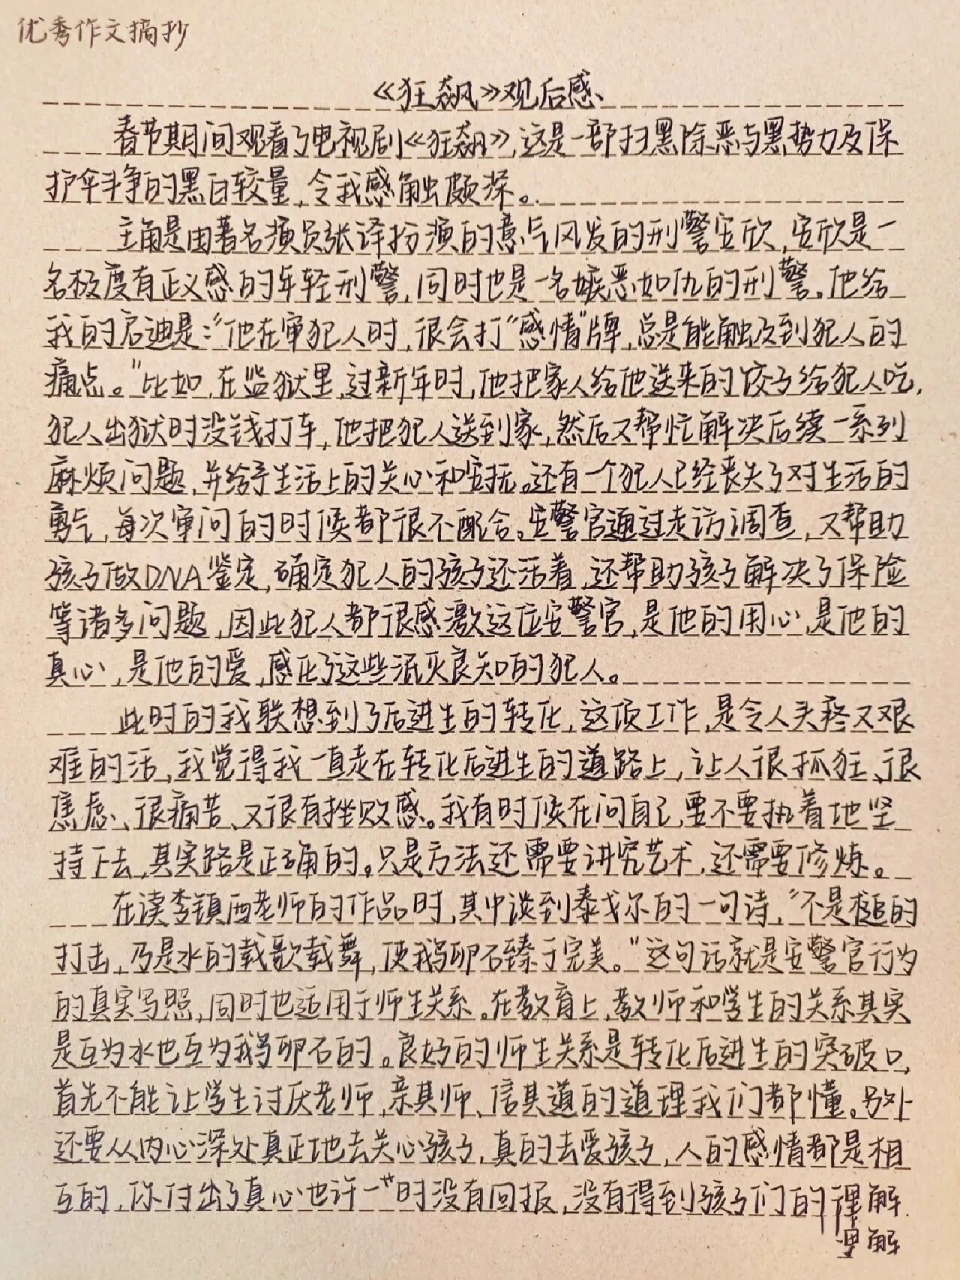 优秀作文摘抄
《狂飙》观后感
春节期间观看了电视剧《狂飙》,这是一部扫黑除恶与黑势力及保
护伞斗争的黑白较量,令我感触颇深。
主角是由著名演员张译扮演的意气风发的刑警安欣,安欣是一
名极度有正义感的年轻刑警,同时也是一名嫉恶如仇的刑警。他给
我的启迪是:“他在审犯人时,很会打“感情”牌,总是能触及到犯人的
痛点。”比如,在监狱里,过新年时,他把家人给他送来的饺子给犯人吃,
犯人出狱时没钱打车,他把犯人送到家,然后又帮忙解决后续一系列
麻烦问题,并给予生活上的关心和安抚。还有一个犯人已经丧失了对生活的
勇气,每次审问的时候都很不配合。安警官通过走访调查,又帮助
孩子做DNA鉴定,确定犯人的孩子还活着,还帮助孩子解决了保险
等诸多问题,因此犯人都很感激这位安警官,是他的用心,是他的
真心,是他的爱,感化了这些泯灭良知的犯人。
此时的我联想到了后进生的转化,这项工作,是令人头疼又艰
难的活,我觉得我一直走在转化后进生的道路上,让人很抓狂、很
焦虑、很痛苦、又很有挫败感。我有时候在问自己,要不要执着地坚
持下去,其实路是正确的。只是方法还需要讲究艺术,还需要修炼。
在读李镇西老师的作品时,其中谈到泰戈尔的一句诗,“不是槌的
打击,乃是水的载歌载舞,使鹅卵石臻于完美。”这句话就是安警官行为
的真实写照,同时也适用于师生关系。在教育上,教师和学生的关系其实
是互为水也互为鹅卵石的。良好的师生关系是转化后进生的突破口,
首先不能让学生讨厌老师,亲其师、信其道的道理我们都懂。另外
还要从内心深处真正地去关心孩子,真的去爱孩子,人的感情都是相
互的,你付出了真心也许一时没有回报,没有得到孩子们的理解
理解